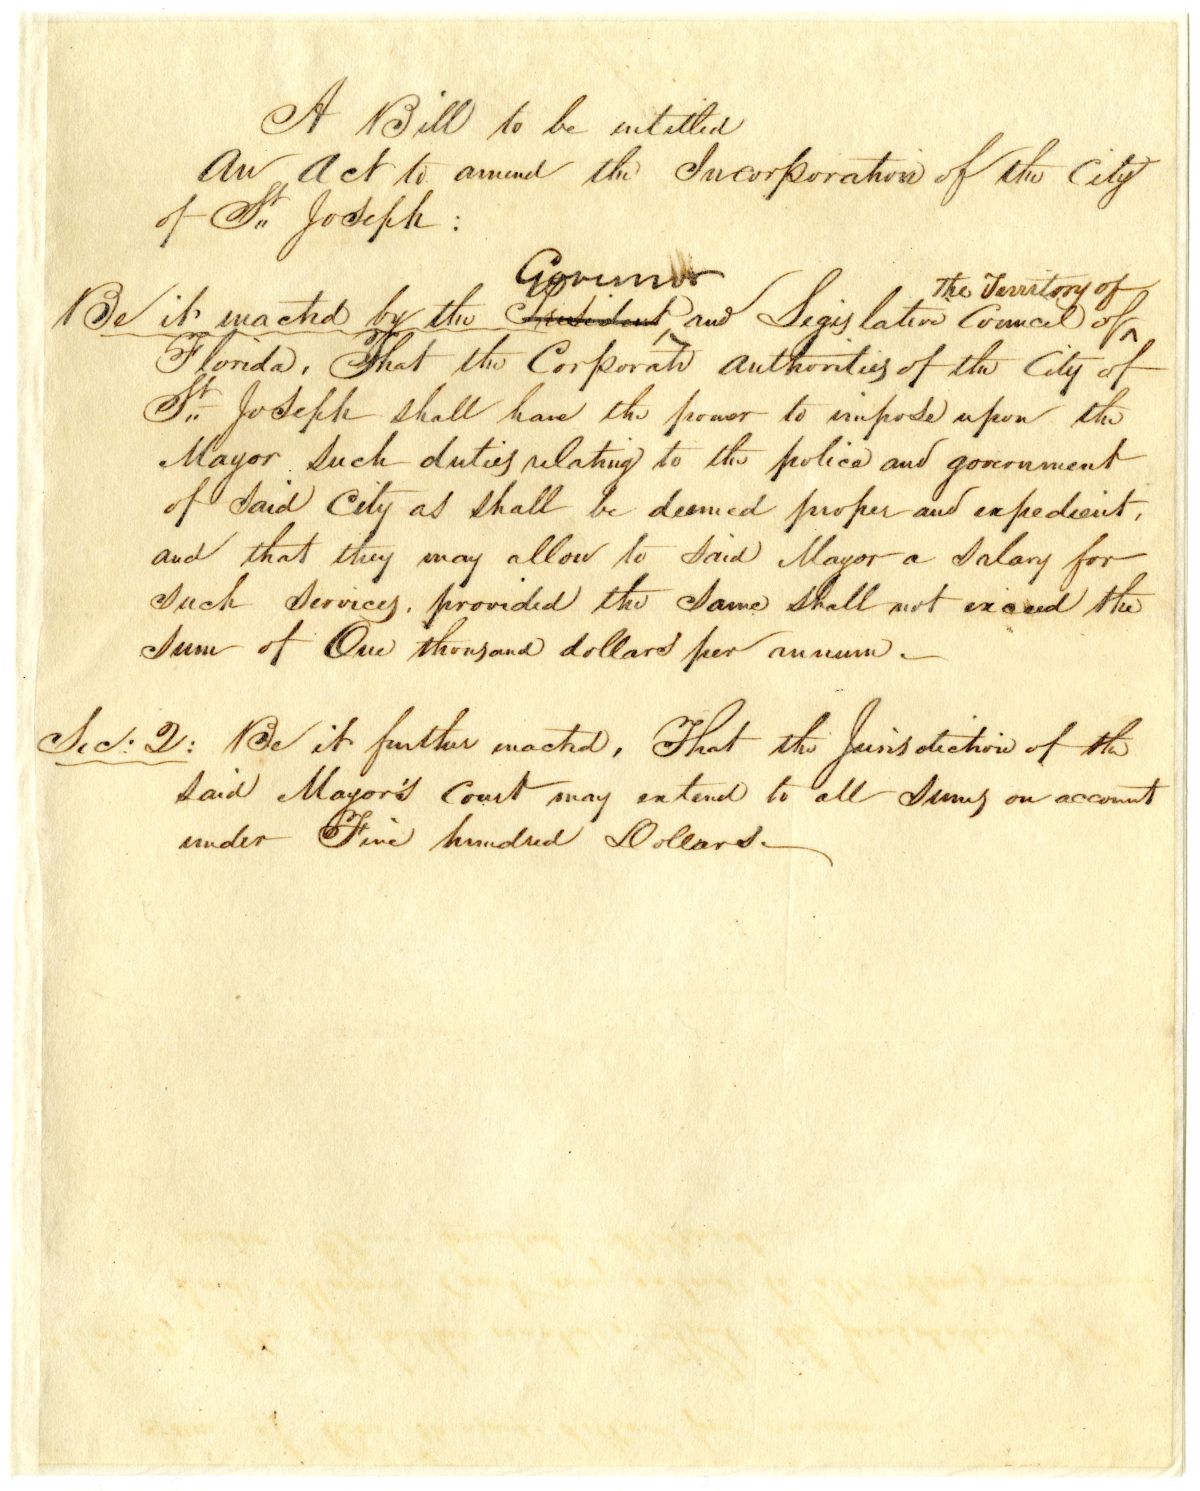 A Bill to be intitled
An Act to amend the Incorporation of the City
of St. Joseph:
Governor
the Territory of
Be it enacted by the President, and Legislative Council of
Florida, That the Corporate authorities of the City of
St. Joseph shall have the power to impose upon the
Mayor such duties relating to the police and government
of said City as shall be deemed proper and expedient,
and that they may allow to said Mayor a salary for
such services, provided the same shall not exceed the
sum of One thousand dollars per annum.
Sec: 2: Be it further enacted, That the Jurisdiction of the
said Mayor's Court may extend to all sums on account
under Five hundred Dollars.